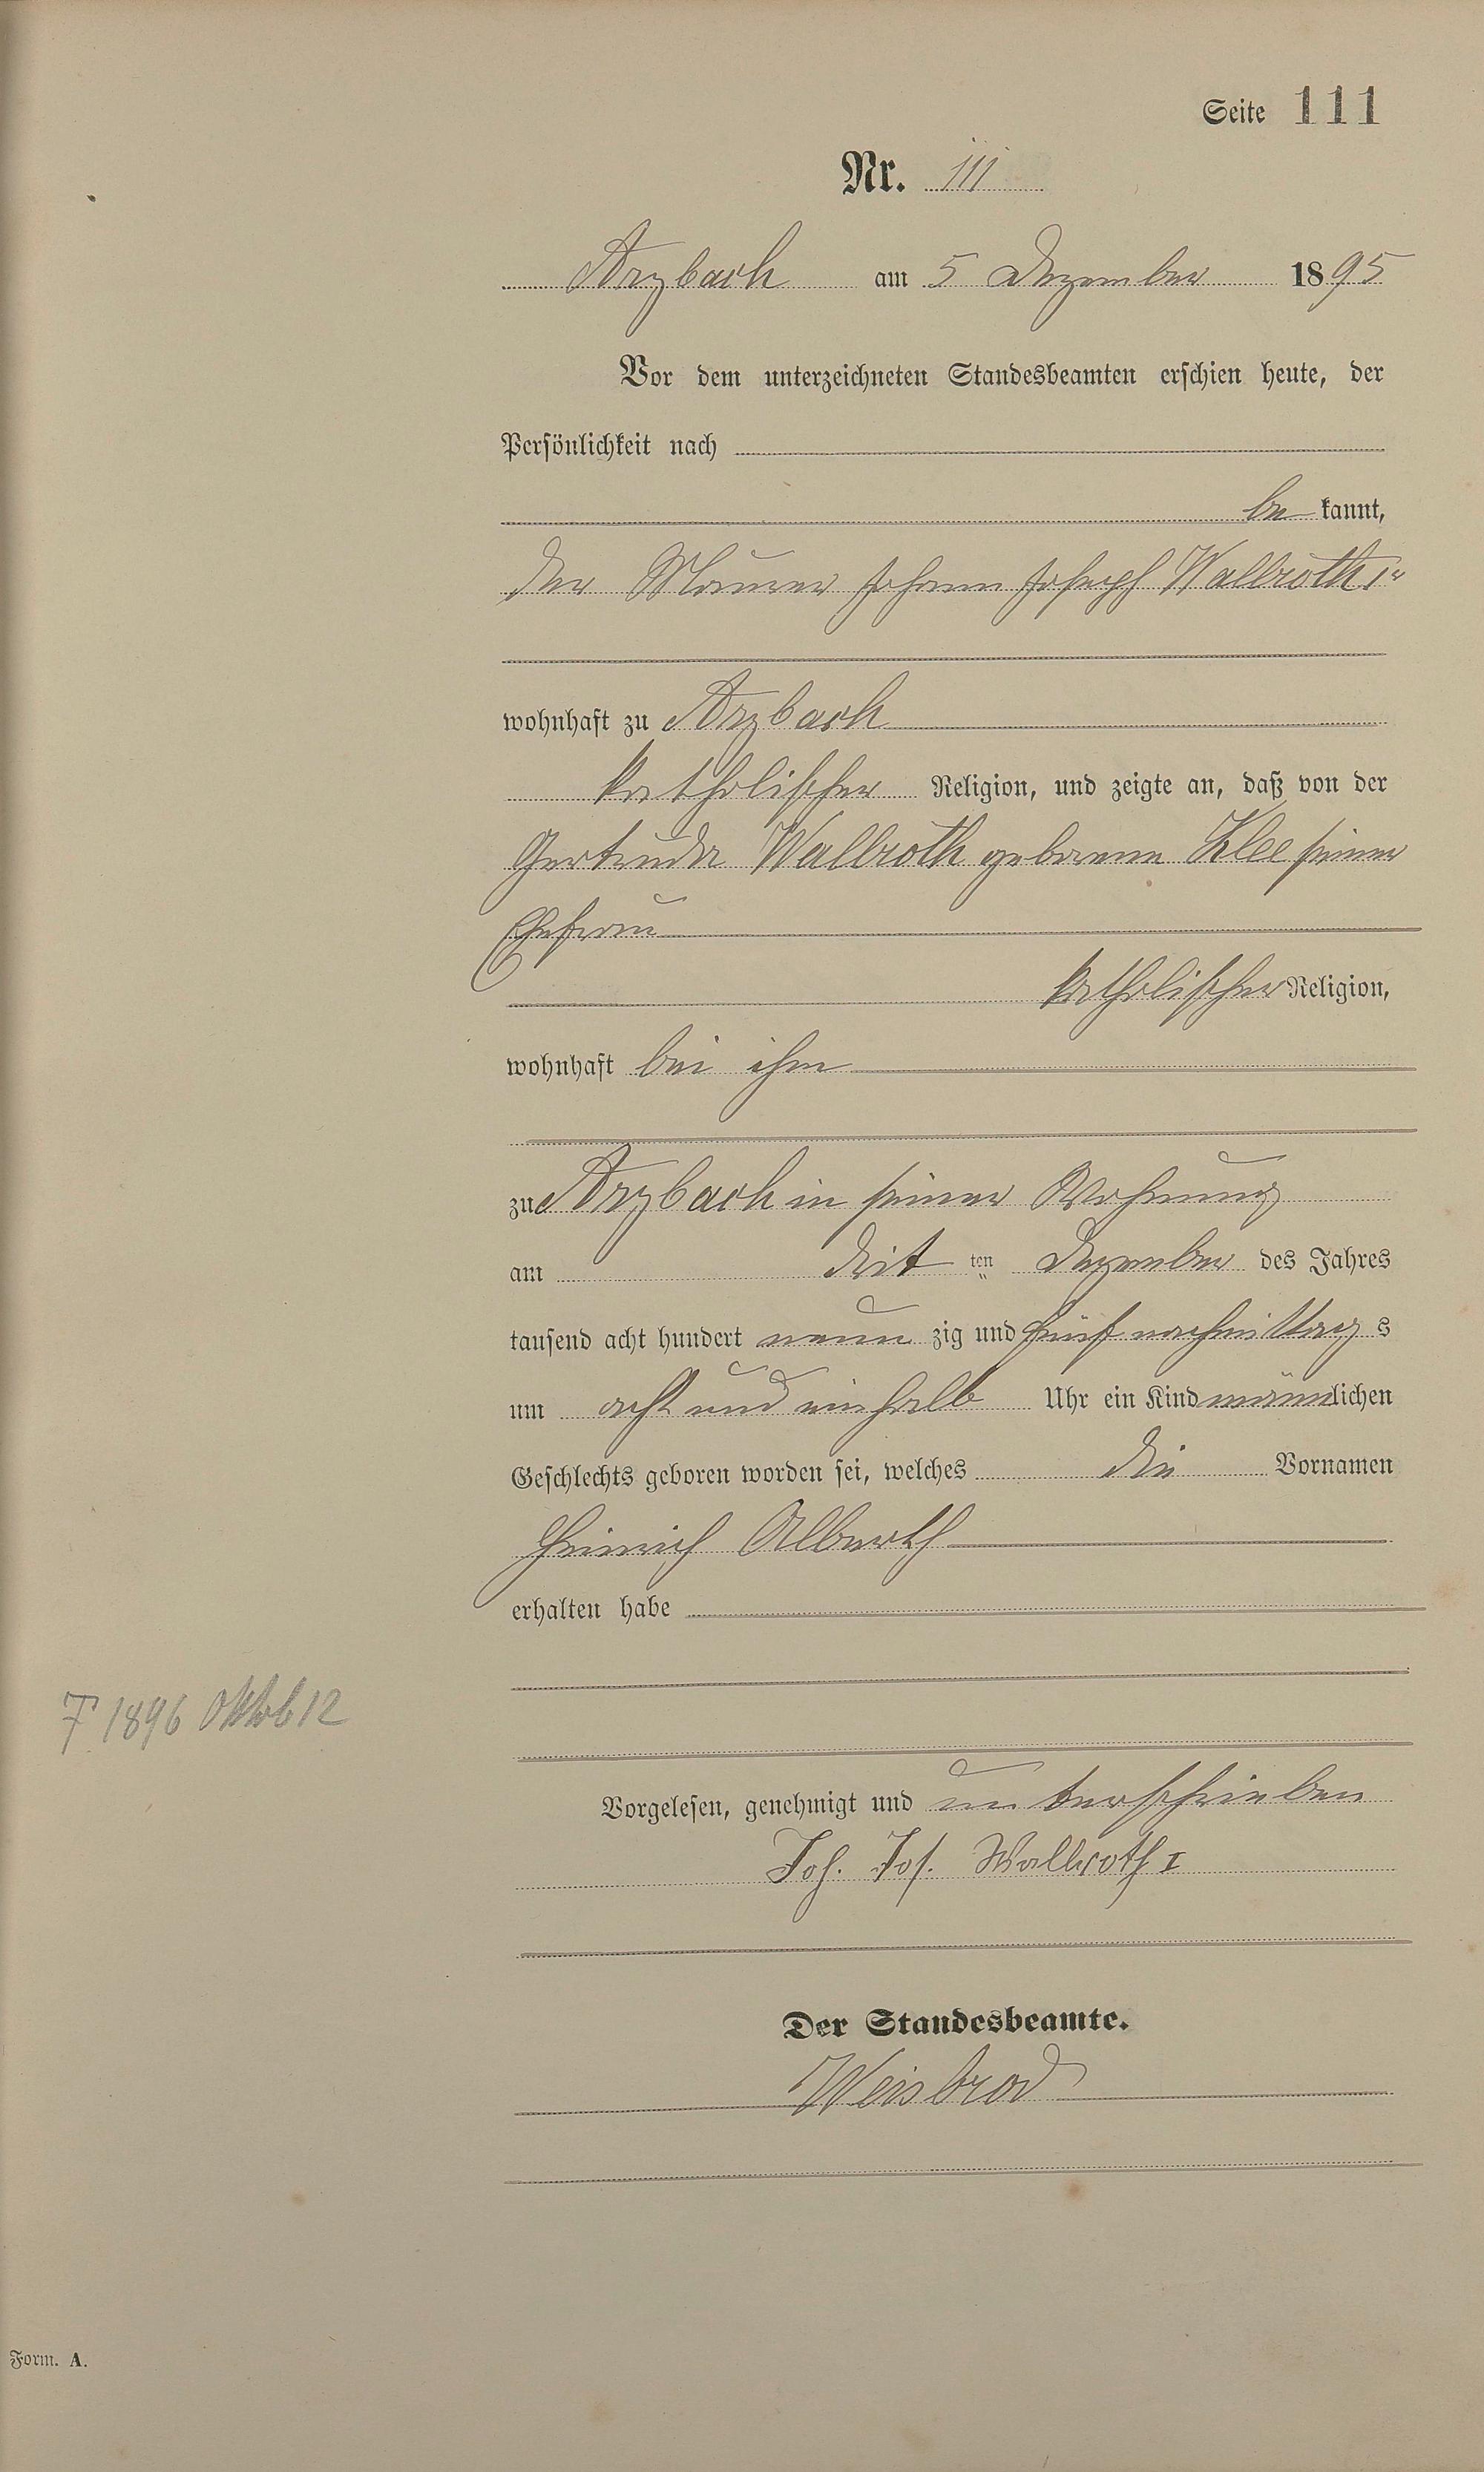 Seite 111
Nr. 111
Arzbach am 5 Dezember 1895
Vor dem unterzeichneten Standesbeamten erschien heute, der
Persönlichkeit nach
be kannt,
der Maurer Johann Joseph Wallroth 1r
wohnhaft zu Arzbach
katholischer Religion, und zeigte an, daß von der
Gertruda Wallroth geborene Klee seiner
Ehefrau
katholischer Religion,
wohnhaft bei ihm
zu Arzbach in seiner Wohnung
am drit ten Dezember des Jahres
tausend acht hundert neun zig und fünf nachmittag s
um acht und einhalb Uhr ein Kind männlichen
Geschlechts geboren worden sei, welches die Vornamen
Heinrich Alberth
erhalten habe
† 1896 Oktob 12
Vorgelesen, genehmigt und unterschrieben
Joh. Jos. Wallroth I
Der Standesbeamte.
Weisbrod
Form. A.